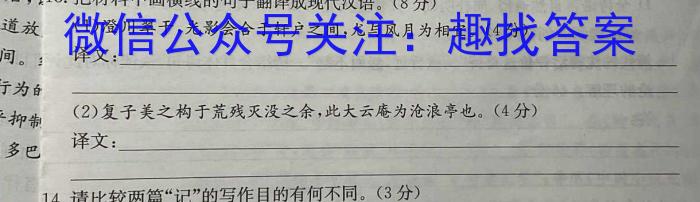 把材料中画横线的句子翻译成现代汉语。(8分)
微信公众号关注：趣找答案
光影会合于轩户之间,尤与风月为相
译文：
(2)复子美之构于荒残灭没之余,此大云庵为沧浪亭也。(4分)
译文：
14.请比较两篇“记”的写作目的有何不同。(3分)
道放
间。
行为的
抑制
多巴